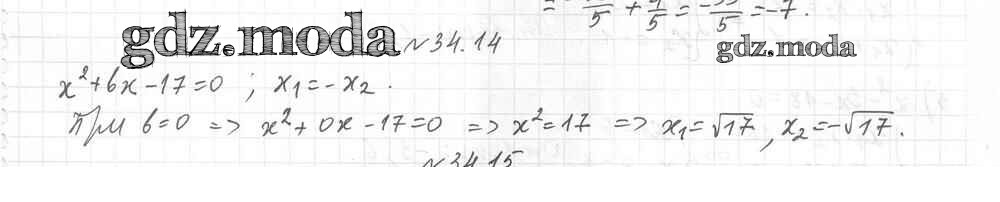 + 4/5 = /5 = -7.
gdz.moda №34.14 gdz.moda
x²+bx-17=0 ; x₁=-x₂.
При b=0 => x²+0x-17=0 => x²=17 => x₁=√17, x₂=-√17.
№34.15